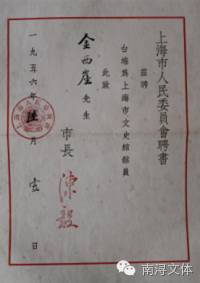 上海市人民委員會聘書
茲聘
台端為上海市文史館館員
此致
金西厓先生
市長
陳毅
一九五六年
月
日
南浔文体